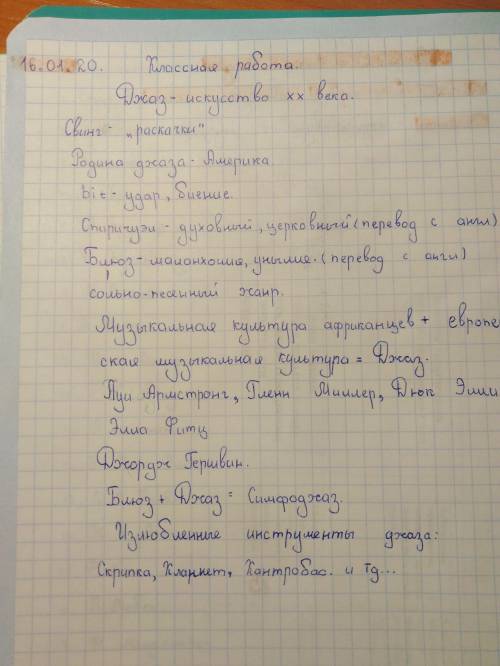 16.01.20. Классная работа.
Джаз - искусство XX века.
Свинг - „раскачки"
Родина джаза - Америка
bit - удар, биение.
Спиричуэл - духовный, церковный (перевод с англ)
Блюз - маланхолия, уныние. (перевод с англ)
сольно-песенный жанр.
Музыкальная культура африканцев + европе
ская музыкальная культура = Джаз.
Луи Армстронг, Гленн Миллер, Дюк Элли
Элла Фитц
Джордж Гершвин.
Блюз + Джаз = Симфоджаз.
Излюбленные инструменты джаза:
Скрипка, Кларнет, Кантробас. и тд...